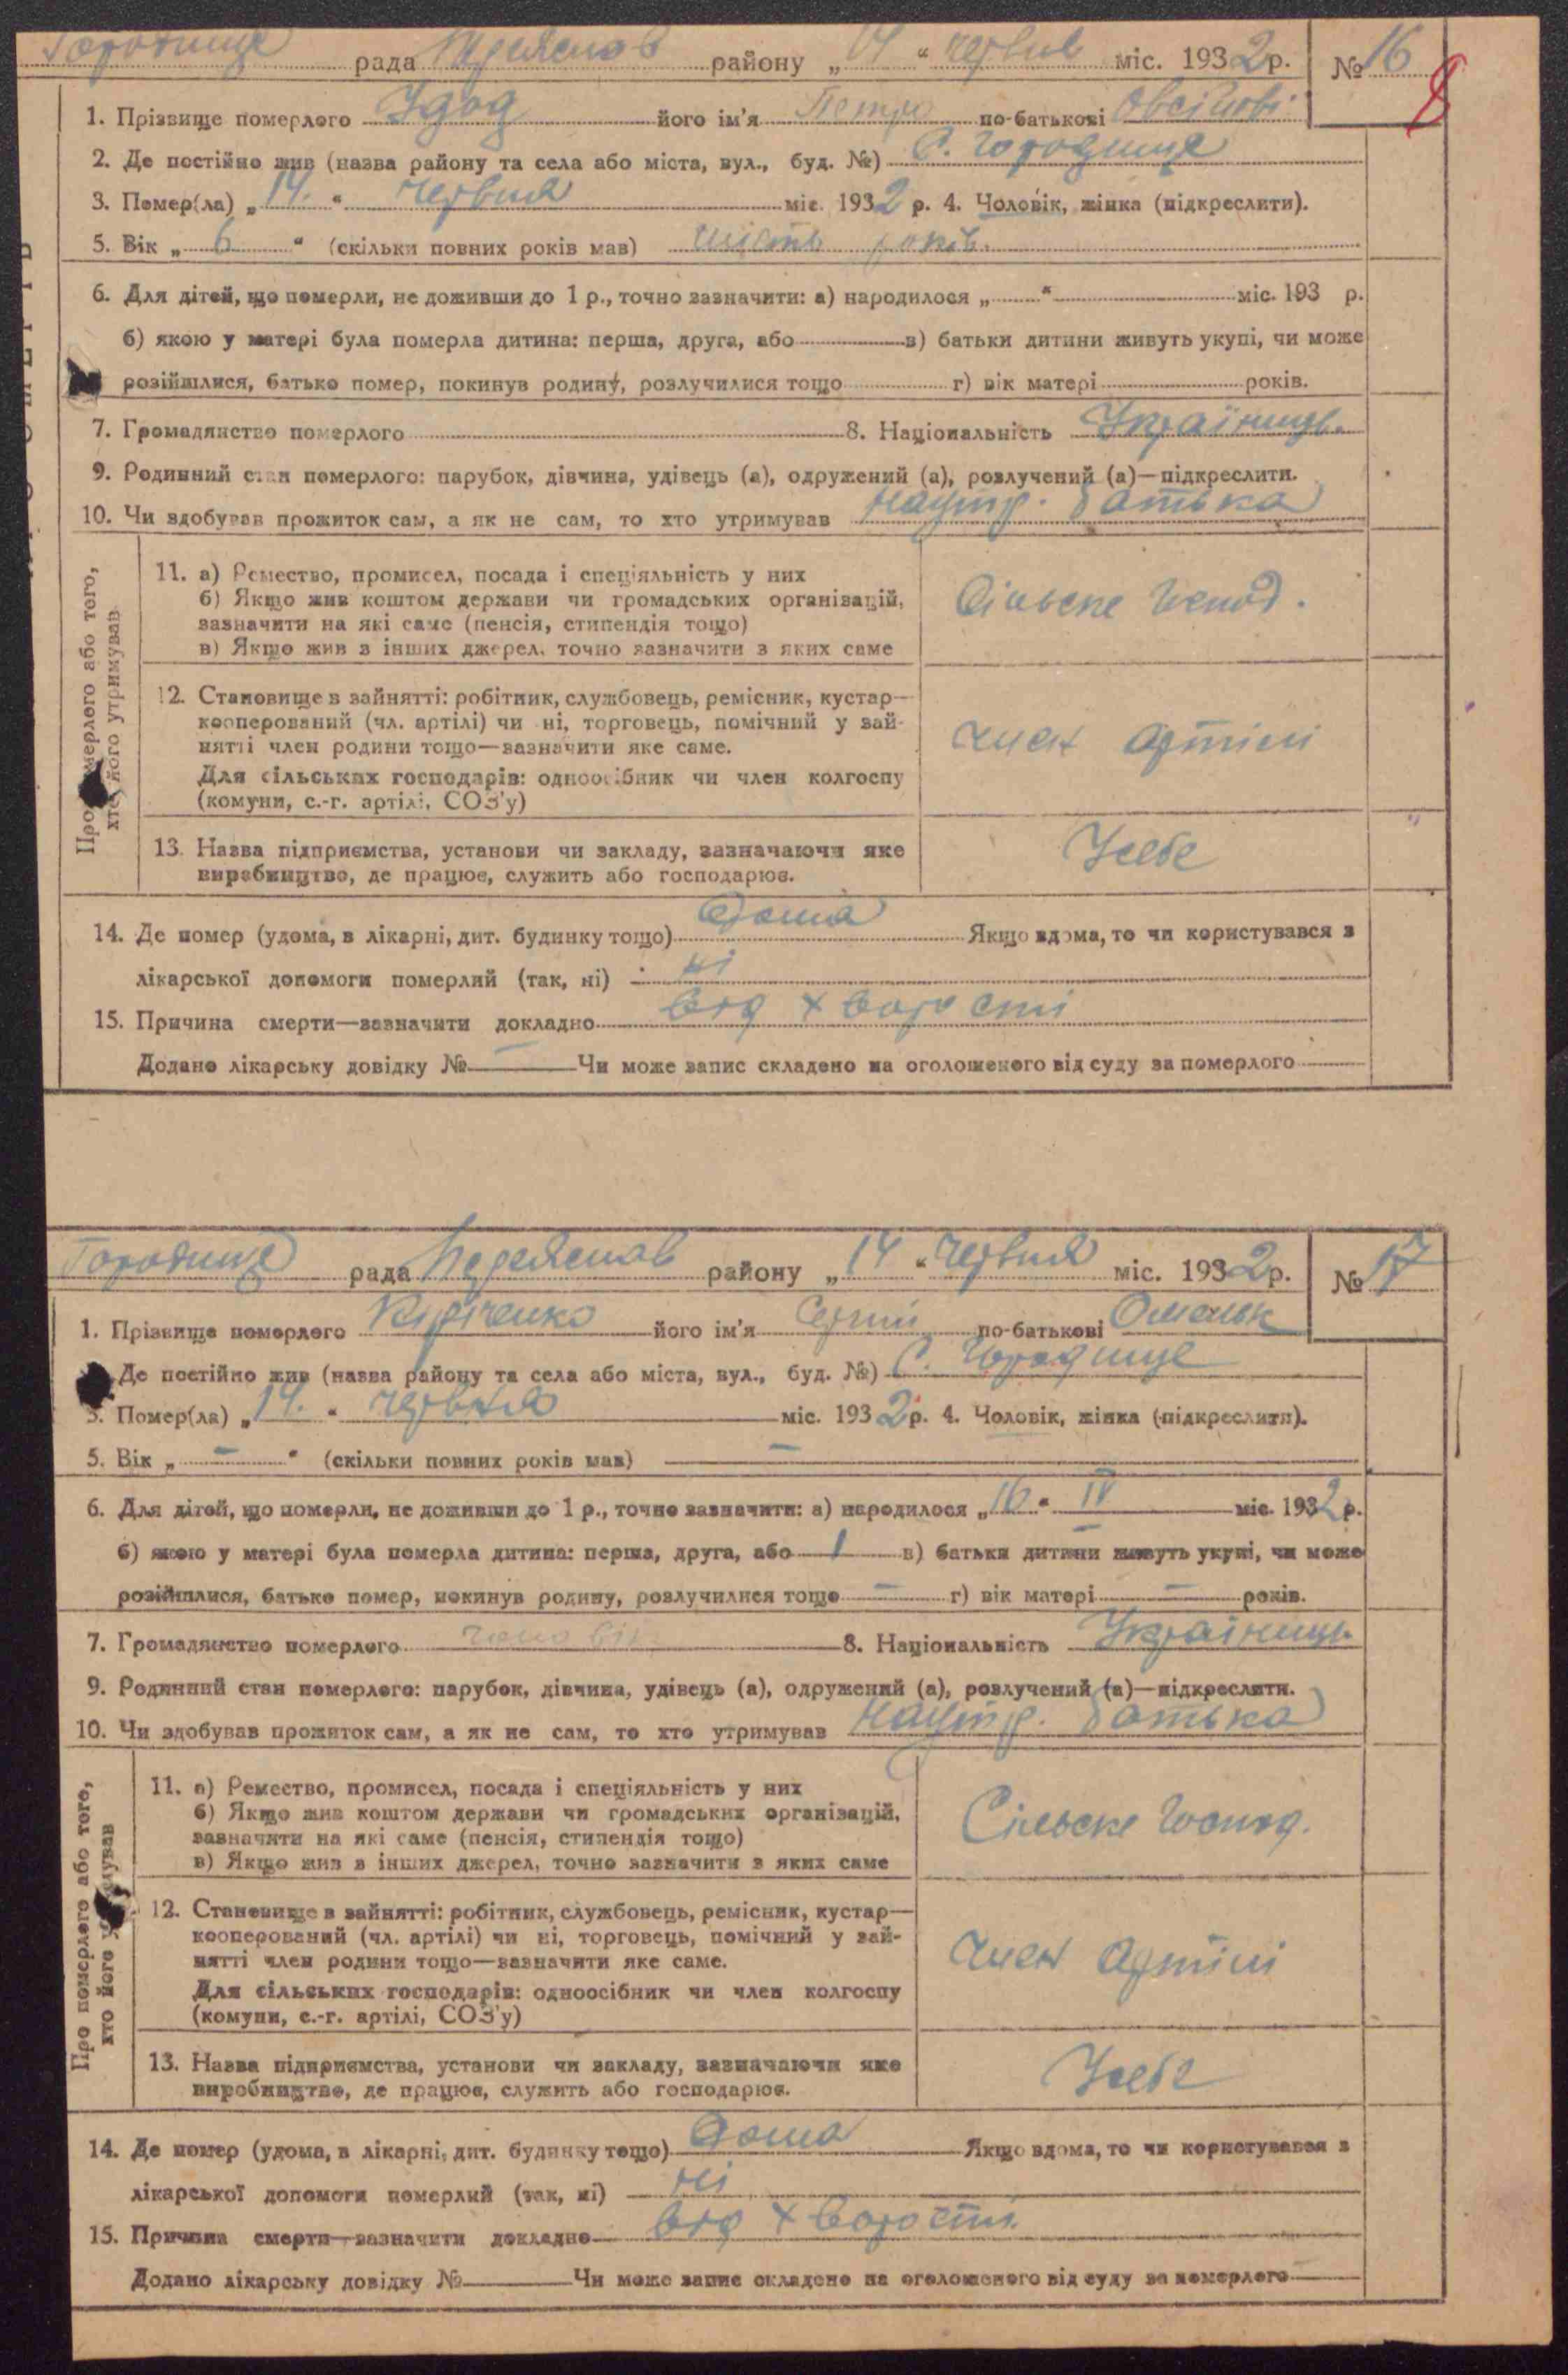 Городище рада Переяслав району „14“ червня міс. 1932 р. № 16
1. Прізвище померлого Удод його ім'я Петро по-батькові
2. Де постійно жив (назва району та села або міста, вул., буд. №) С. Городище
3. Помер(ла) „14.“ червня міс. 1932 р. 4. Чоловік, жінка (підкреслити).
5. Вік „6“ (скільки повних років мав) шість років.
6. Для дітей, що померли, не доживши до 1 р., точно зазначити: а) народилося „ “ міс. 193 р.
б) якою у матері була померла дитина: перша, друга, або в) батьки дитини живуть укупі, чи може
розійшлися, батько помер, покинув родину, розлучилися тощо г) вік матері років.
7. Громадянство померлого 8. Національність Українець.
9. Родинний стан померлого: парубок, дівчина, удівець (а), одружений (а), розлучений (а)—підкреслити.
10. Чи здобував прожиток сам, а як не сам, то хто утримував На утр. батька
Про померлого або того,
хто його утримував
11. а) Ремество, промисел, посада і спеціяльність у них
б) Якщо жив коштом держави чи громадських організацій,
зазначити на які саме (пенсія, стипендія тощо)
в) Якщо жив з інших джерел, точно зазначити з яких саме
Сільське Господ.
12. Становище в зайнятті: робітник, службовець, ремісник, кустар—
кооперований (чл. артілі) чи ні, торговець, помічний у зай-
нятті член родини тощо—зазначити яке саме.
Для сільських господарів: одноосібник чи член колгоспу
(комуни, с.-г. артілі, СОЗ'у)
член артілі
13. Назва підприємства, установи чи закладу, зазначаючи яке
виробництво, де працює, служить або господарює.
У себе
14. Де помер (удома, в лікарні, дит. будинку тощо) Дома Якщо вдома, то чи користувався з
лікарської допомоги померлий (так, ні) ні
15. Причина смерти—зазначити докладно від хворости
Додано лікарську довідку № — Чи може запис складено на оголошеного від суду за померлого
Городище рада Переяслав району „14“ червня міс. 1932 р. № 17
1. Прізвище померлого Кириченко його ім'я Сергій по-батькові Омельк
Де постійно жив (назва району та села або міста, вул., буд. №) С. Городище
3. Помер(ла) „14.“ червня міс. 1932 р. 4. Чоловік, жінка (підкреслити).
5. Вік „—“ (скільки повних років мав) —
6. Для дітей, що померли, не доживши до 1 р., точно зазначити: а) народилося „16“ IV міс. 1932 р.
б) якою у матері була померла дитина: перша, друга, або 1 в) батьки дитини живуть укупі, чи може
розійшлися, батько помер, покинув родину, розлучилися тощо — г) вік матері — років.
7. Громадянство померлого чоловік 8. Національність Українець
9. Родинний стан померлого: парубок, дівчина, удівець (а), одружений (а), розлучений (а)—підкреслити.
10. Чи здобував прожиток сам, а як не сам, то хто утримував На утр. батька
Про померлого або того,
хто його утримував
11. а) Ремество, промисел, посада і спеціяльність у них
б) Якщо жив коштом держави чи громадських організацій,
зазначити на які саме (пенсія, стипендія тощо)
в) Якщо жив в інших джерел, точно зазначити з яких саме
Сільське Господ.
12. Становище в зайнятті: робітник, службовець, ремісник, кустар—
кооперований (чл. артілі) чи ні, торговець, помічний у зай-
нятті член родини тощо—зазначити яке саме.
Для сільських господарів: одноосібник чи член колгоспу
(комуни, с.-г. артілі, СОЗ'у)
член артілі
13. Назва підприємства, установи чи закладу, зазначаючи яке
виробництво, де працює, служить або господарює.
У себе
14. Де помер (удома, в лікарні, дит. будинку тощо) Дома Якщо вдома, то чи користувався з
лікарської допомоги померлий (так, ні) ні
15. Причина смерти—зазначити докладно від хворости
Додано лікарську довідку № Чи може запис складено на оголошеного від суду за померлого